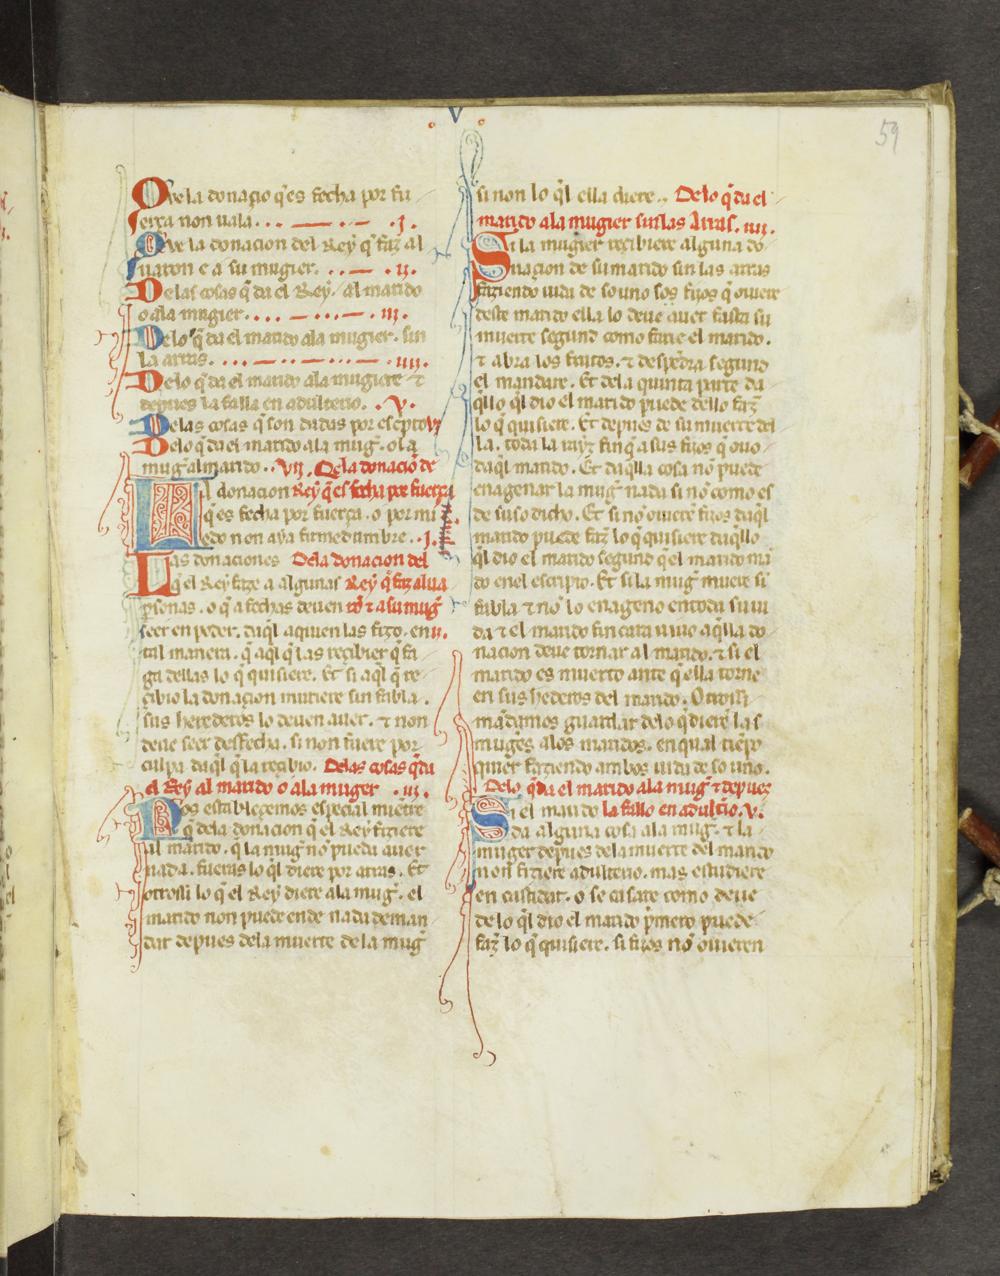 V
59
Que la donaçio q̃ es fecha por fu
erça non uala . . . — — . — . j.
Que la donacion del Rey q̃ faz al
uaron e a su mugier. . . . — . ij.
Delas cosas q̃ da el Rey. al marido
o ala mugier . . . . — . . . — . iij.
Delo q̃ da el marido ala mugier. sin
la arras. . . . — . . . — . . . — . . iiij.
Delo q̃ da el marido ala mugiere ⁊
depues la falla en adulterio. . . V.
Delas cosas q̃ son dadas por escpto vj
Delo q̃ da el marido ala mug̃. o la
mug̃ al marido . . vij. Dela donaçio de
La donacion Rey q̃ es fecha por fuerça
q̃ es fecha por fuerça. o por mi
edo non aya firmedumbre. . j.
Las donaciones Dela donacion del
q̃ el Rey faze a algunas Rey q̃ faz al ua
psonas. o q̃ a fechas deuen ro ⁊ a su mug̃
seer en poder. daq̃l aquien las fizo. en ij.
tal manera. q̃ aq̃l q̃ las reçibier q̃ fa
ga dellas lo q̃ quisiere. Et si aq̃l q̃ re
çibio la donaçion muriere sin fabla.
sus herederos lo deuen auer. ⁊ non
deue seer desfecha. si non fuere por
culpa daq̃l q̃ la reçibio. Delas cosas q̃ da
el Rey al marido o ala muger . iij.
Nos establecemos especial miẽtre
q̃ dela donacion q̃ el Rey fiziere
al marido. q̃ la mug̃ no pueda auer
nada. fueras lo q̃l diere por arras. Et
otrossi lo q̃ el Rey diere ala mug̃. el
marido non puede ende nada deman
dar depues dela muerte de la mug̃
si non lo q̃l ella diere . . Delo q̃ da el
marido ala mugier sin las Arras. iiij.
Si la mugier reçibiere alguna do
nacion de su marido sin las arras
faziendo uida de so uno sos fijos q̃ ouiere
deste marido ella lo deue auer fasta su
muerte segund como fuere el marido.
⁊ abra los frutos. ⁊ despẽdra segund
el mandare. Et dela quinta parte da
q̃llo q̃l dio el marido puede dello faz̃
lo q̃ quisiere. Et depues de su muerte del
la. toda la rayz finq̃ a sus fijos q̃ ouo
daq̃l marido. Et daq̃lla cosa no puede
enagenar la mug̃ nada si no como es
de suso dicho. Et si no ouiere fijos daq̃l
marido puede faz̃ lo q̃ quisiere daq̃llo
q̃l dio el marido segund q̃ el marido mã
do en el escripto. Et si la mug̃ muere si
fabla ⁊ no lo enageno en toda su ui
da ⁊ el marido fincara uiuo aq̃lla do
nacion deue tornar al marido. ⁊ si el
marido es muerto ante q̃ ella torne
en sus hederos del marido. Otrossi
mãdamos guardar delo q̃ dierẽ las
mug̃es alos maridos. en qual tiẽpo
quier faziendo ambos uida de so uno.
Delo q̃ da el marido ala mug̃ ⁊ depues
Si el marido la fallo en adultio. v.
da alguna cosa ala mug̃. ⁊ la
muger depues dela muerte del marido
non fiziere adulterio. mas estudiere
en castidat. o se casare como deue
de lo q̃l dio el marido p̃mero puede
faz̃ lo q̃ quisiere. si fijos no ouieren